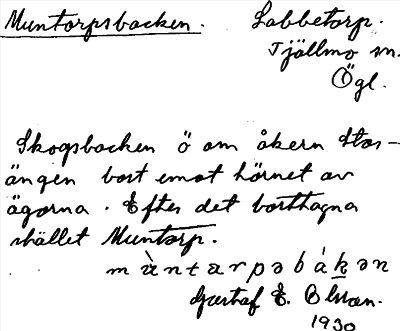 Muntorpsbacken. Labbetorp.
Tjällmo sn.
Ögl.
Skogsbacken ö om åkern Stor-
ängen bort emot hörnet av
ägorna. Efter det borttagna
stället Muntorp.
m ù n t a r p ə b á k ə n
Gustaf E. Olsson.
1930